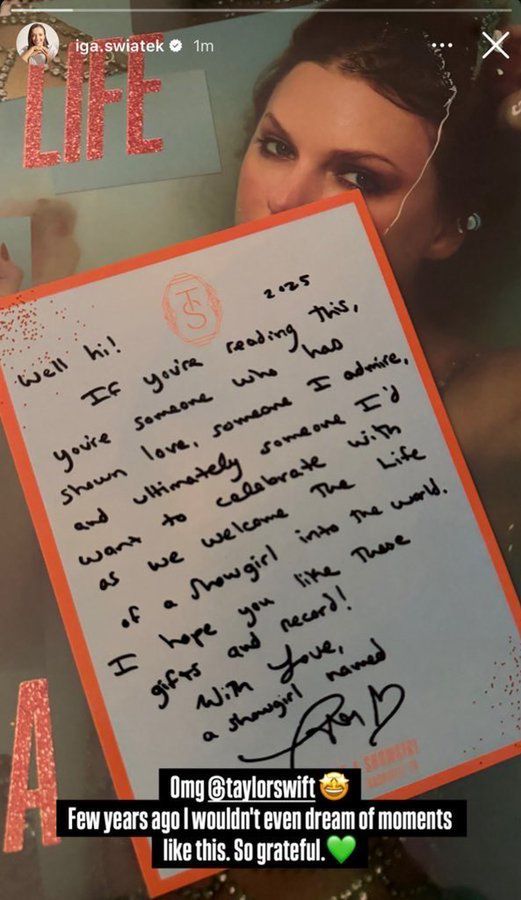 iga.swiatek 1m
LIFE
TS
2025
Well hi!
If you're reading this,
you're someone who has
shown love, someone I admire,
and ultimately someone I'd
want to celebrate with
as we welcome The Life
of a Showgirl into the world.
I hope you like these
gifts and record!
With Love,
a showgirl named
Taylor
A SHOWGIRL
A
Omg @taylorswift 🤩
Few years ago I wouldn't even dream of moments
like this. So grateful.💚